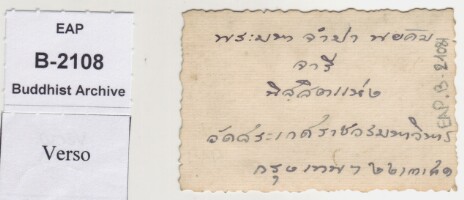 EAP
B-2108
Buddhist Archive
Verso
พระมหา จำปา
จารี
แห่ง
วัดสระเกศราชวรมหาวิหาร
กรุงเทพฯ
EAP.B-2108